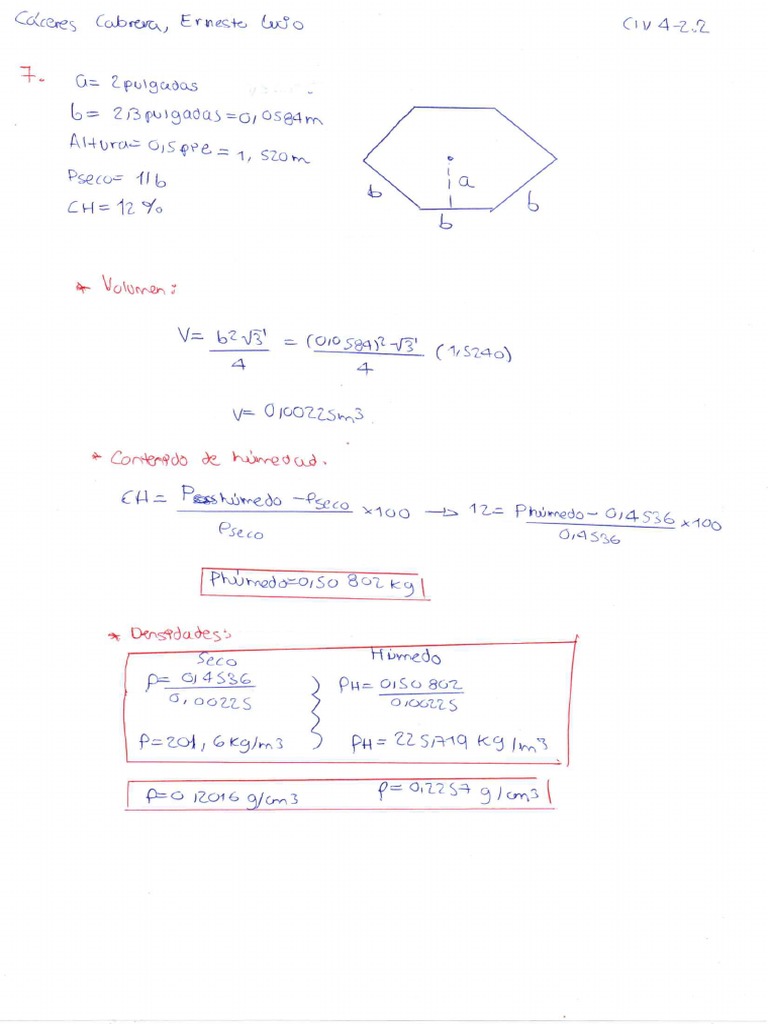 Cáceres Cabrera, Ernesto Lucio
CIV 4-2.2
7.
a= 2 pulgadas
b= 2,3 pulgadas = 0,0584m
Altura= 0,5 pie = 1,520m
Pseco= 1lb
CH= 12%
a
b
b
b
* Volumen:
V= b²√3/4 = (0,0584)²√3/4 (1,5240)
V= 0,00225m3
* Contenido de húmedad.
CH= Phúmedo - Pseco/Pseco x100 → 12= Phúmedo - 0,4536/0,4536 x100
Phúmedo=0,50802 kg
* Densidades:
Seco Húmedo
ρ= 0,4536/0,00225 ρH= 0,50802/0,00225
ρ=201,6 kg/m3 ρH= 225,719 kg/m3
ρ=0,2016 g/cm3 ρ= 0,2257 g/cm3